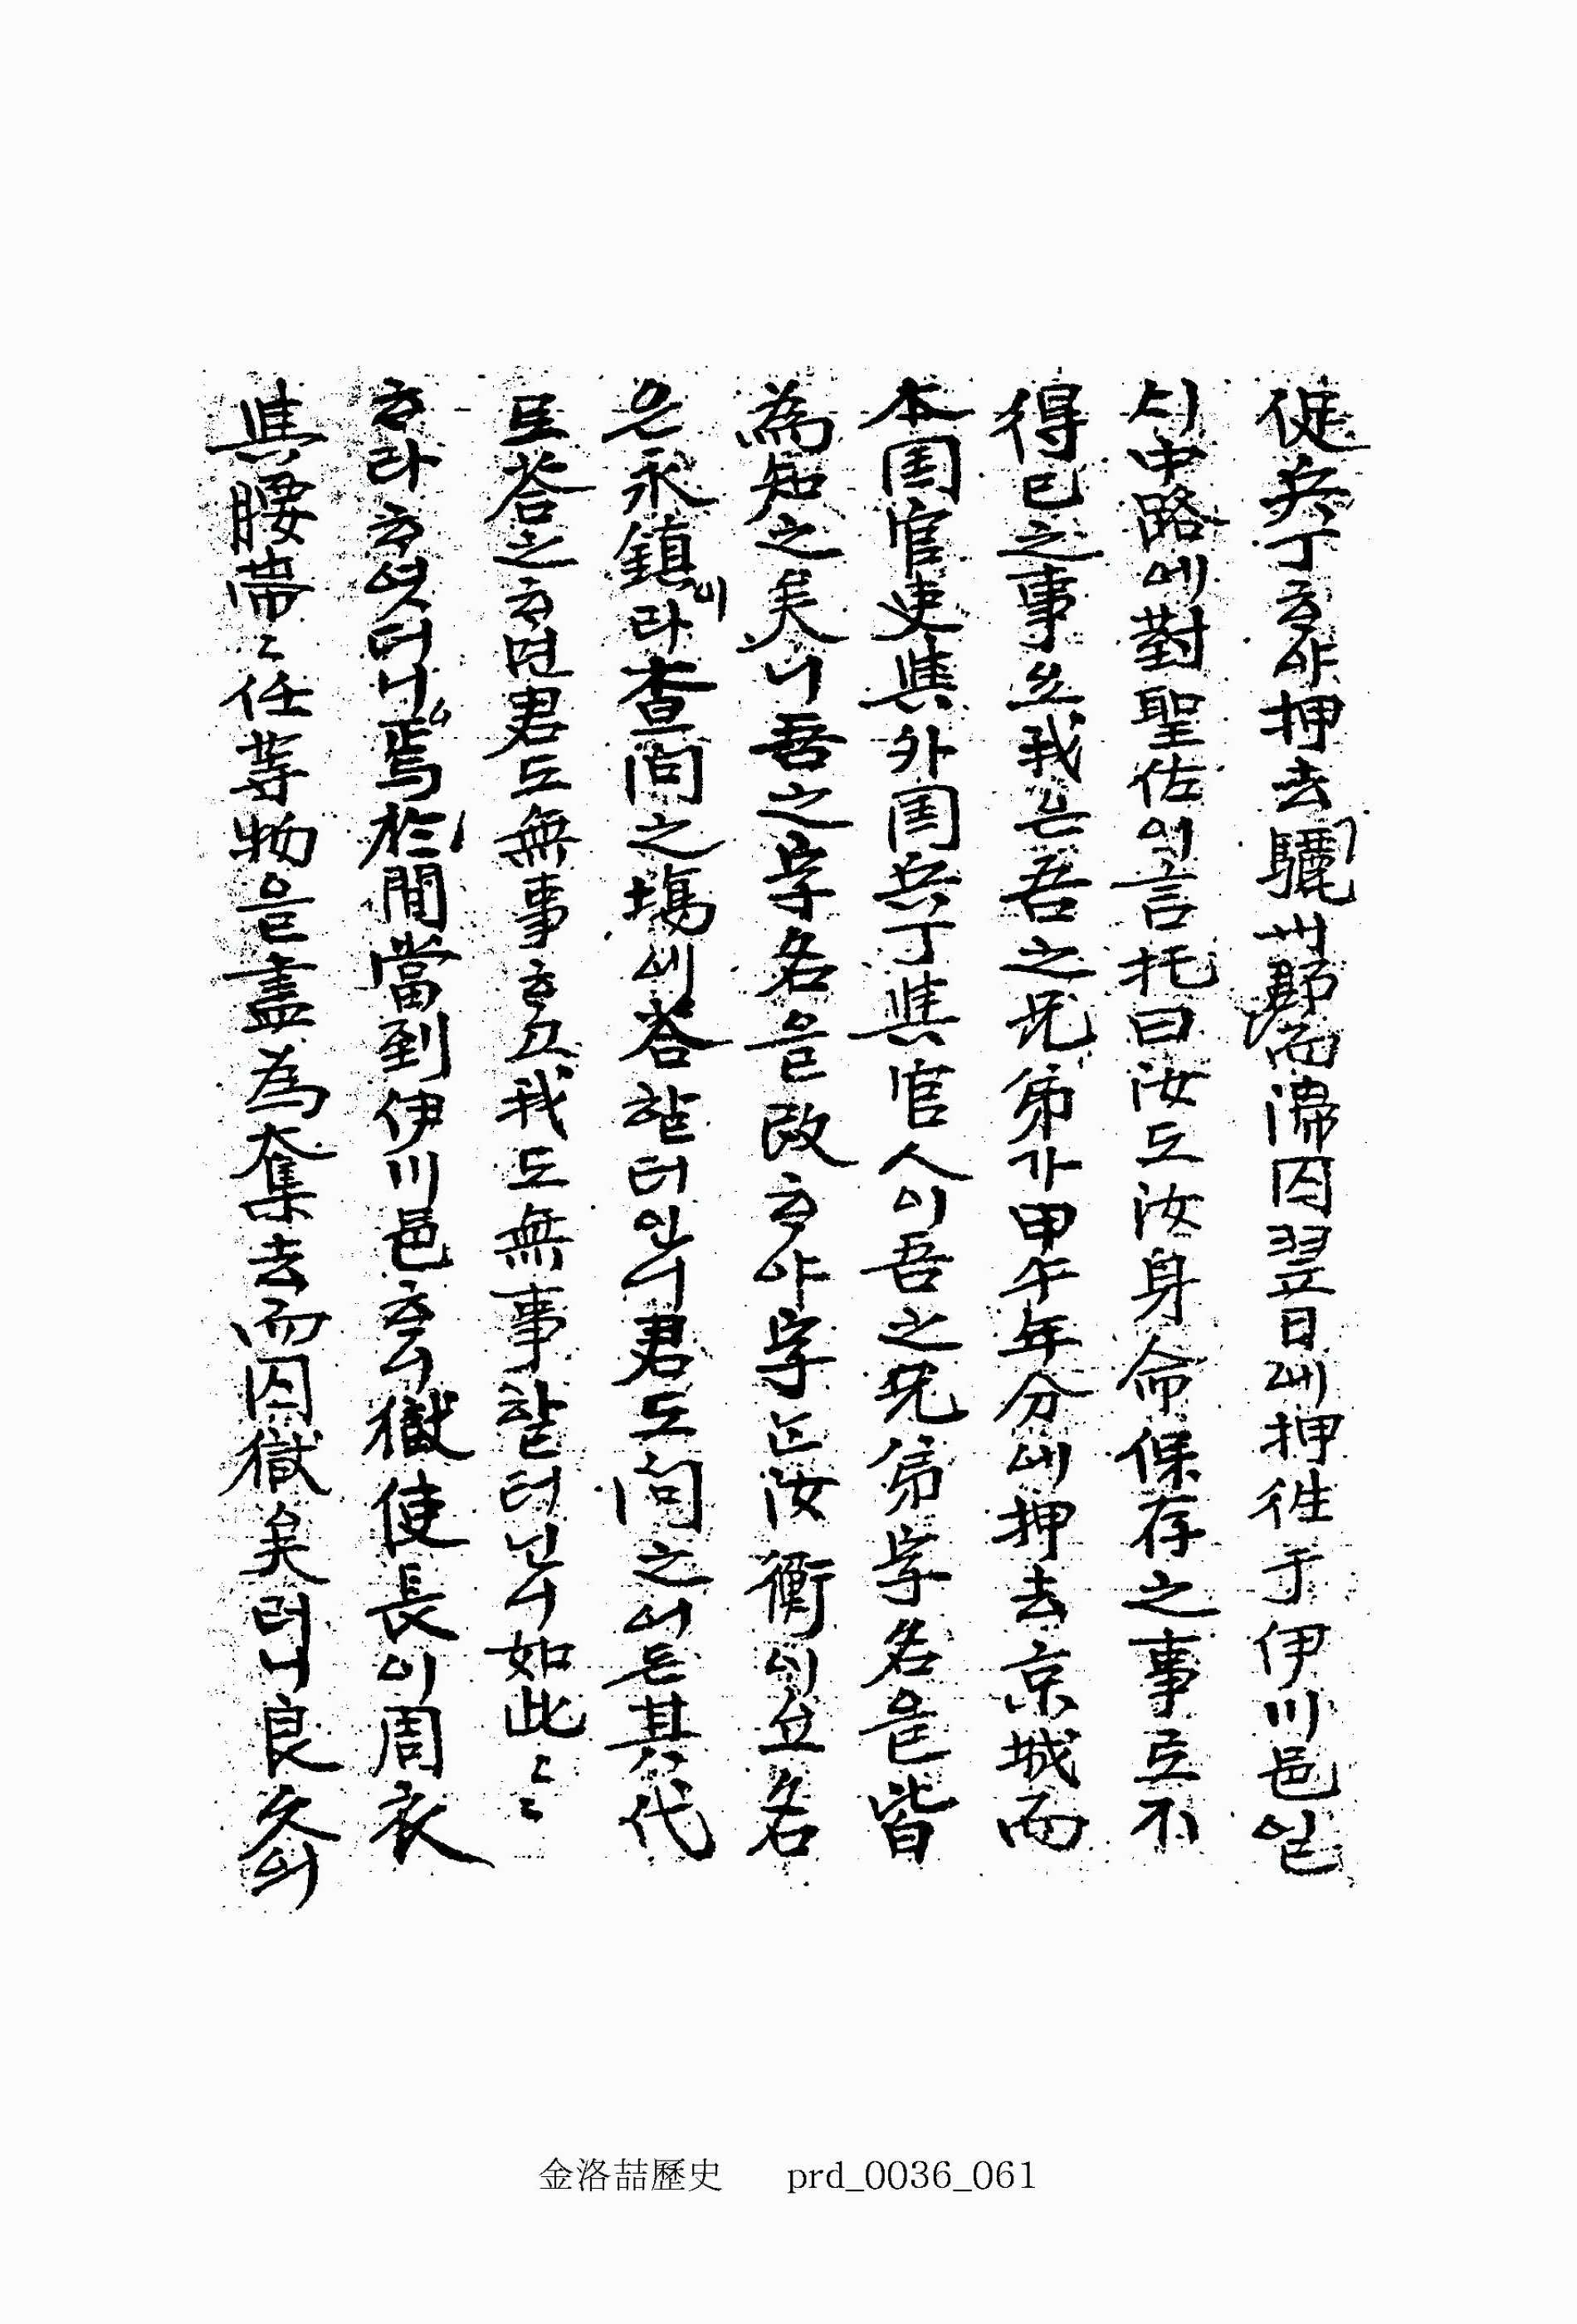 徒兵丁ᄒᆞ야押去驪州郡而滯囚翌日에押往于伊川邑일
시中路에對聖佑이言托曰汝도汝身命保存之事로不
得已之事요我는吾之兄弟가甲午年分에押去京城而
本国官吏與外国兵丁與官人이吾之兄弟字名은皆
為知之矣니吾之字名을改ᄒᆞ야字는汝衡이요名
은永鎮이라査问之場에答할터이니君도问之어든其代
로答之ᄒᆞ면君도無事ᄒᆞ고我도無事할터니如此〻〻
ᄒᆞ라ᄒᆞ엿더니焉於間當到伊川邑ᄒᆞ니獄使長이周衣
與腰帶〻任等物을盡為奪去而囚獄矣러니良久에
金洛喆歷史 prd_0036_061